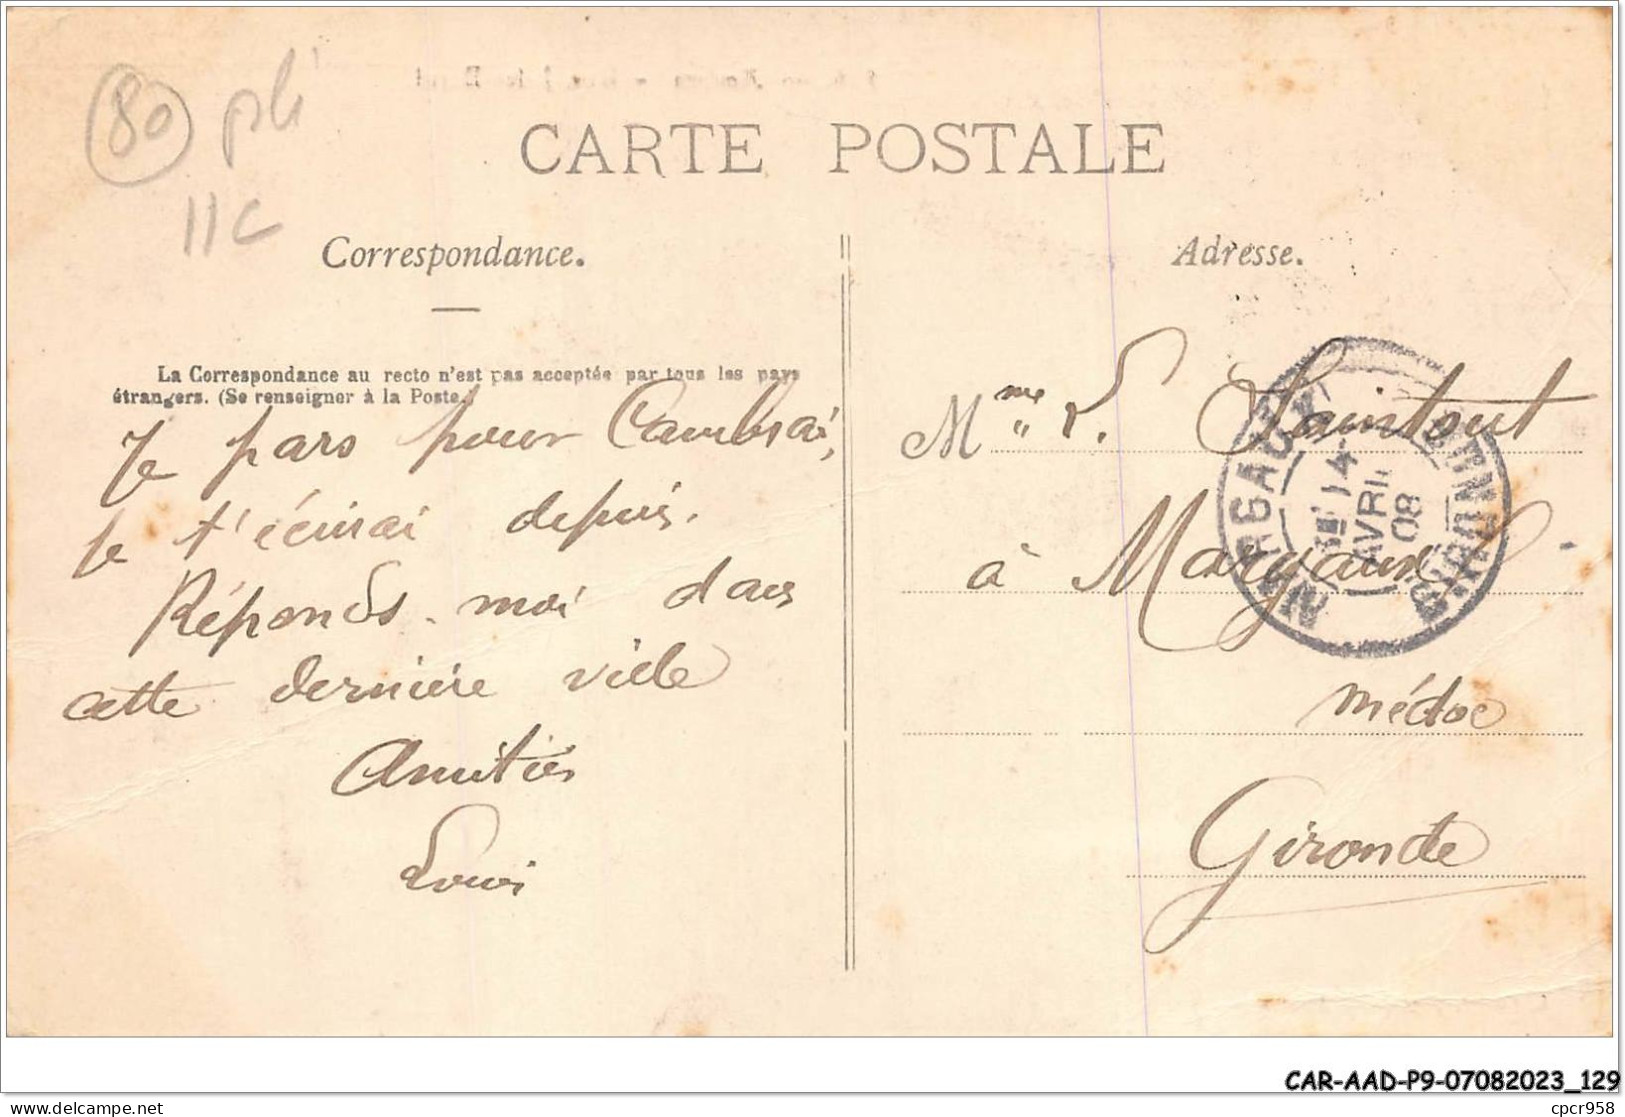 80 pli
11C
CARTE POSTALE
Correspondance.
La Correspondance au recto n'est pas acceptée par tous les pays
étrangers. (Se renseigner à la Poste.)
Je pars pour Cambrai,
je t'écrirai depuis.
Réponds-moi dans
cette dernière ville
Amitiés
Louis
Adresse.
Mme P. Saintout
à Margaux
Médoc
Gironde
MARGAUX
14
AVRIL
08
GIRONDE
CAR-AAD-P9-07082023_129
delcampe.net
cpcr958